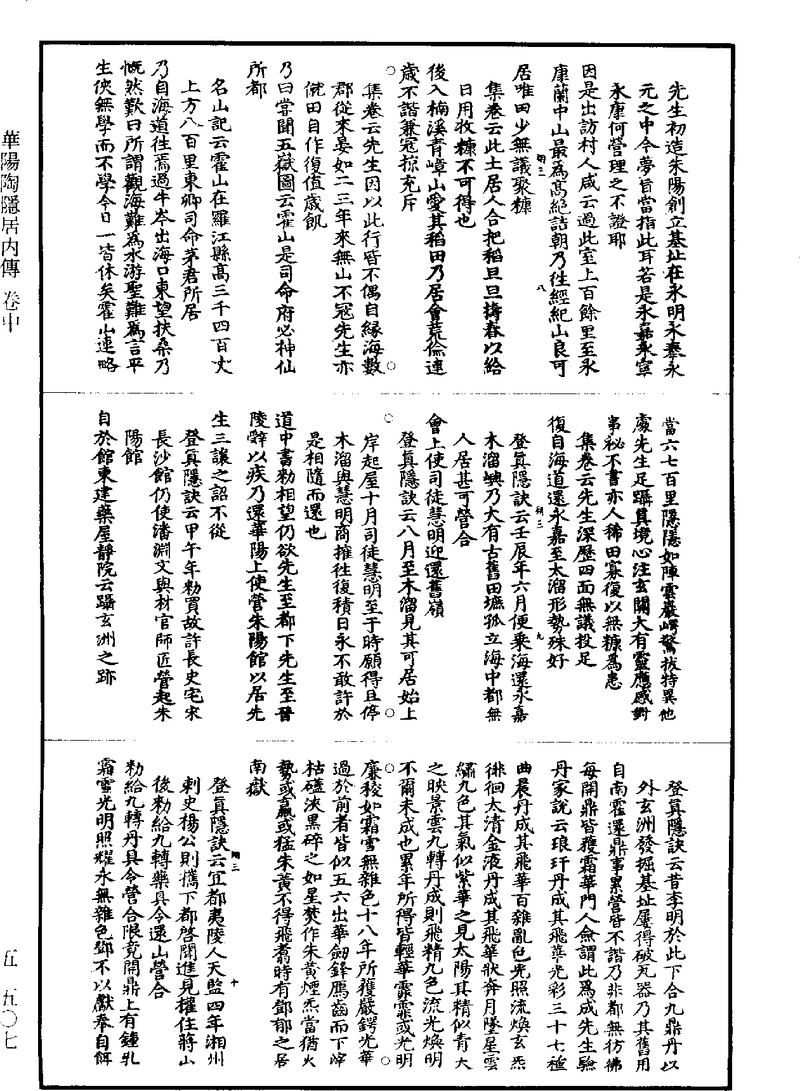 華陽陶隱居內傳 卷中
先生初造朱陽創立基址在永明永奉永
元之中今夢旨當指此耳若是永嘉永寧
永康何管理之不證耶
因是出訪村人咸云過此室上百餘里至永
康蘭中山最為高絕詰朝乃往經紀山良可
居唯田少無議聚糠
集卷云此土居人合把稻旦旦擣舂以給
日用收糠不可得也
後入楠溪青嶂山愛其稻田乃居會荒儉連
歲不諧兼冠掠充斥
集卷云先生因以此行皆不偶自緣海數
郡從來晏如二三年來無山不冠先生亦
俶田自作復值歲飢
乃曰嘗聞五嶽圖云霍山是司命府必神仙
所都
名山記云霍山在羅江縣高三千四百丈
上方八百里東卿司命茅君所居
乃自海道往焉過牛岑出海口東望扶桑乃
慨然歎曰所謂觀海難為水游聖難為言平
生俠無學而不學今日一皆休矣霍山連略
當六七百里隱隱如陣雲巖崿驚拔特異他
處先生足躡真境心注玄關大有靈應感對
事秘不書亦人稀田寡復以無糠為患
集卷云先生深歷四面無議投足
復自海道還永嘉至大溜形勢殊好
登真隱訣云壬辰年六月便乘海還永嘉
木溜嶼乃大有古舊田墟孤立海中都無
人居甚可營合
會上使司徒慧明迎還舊嶺
登真隱訣云八月至木溜見其可居始上
岸起屋十月司徒慧明至于時願得且停
木溜與慧明商搉往復積日永不敢許於
是相隨而還也
道中書勑相望仍欲先生至都下先生至晉
陵辭以疾乃還華陽上使營朱陽館以居先
生三讓之詔不從
登真隱訣云甲午年勑買故許長史宅宋
長沙館仍使潘淵文與材官師匠營起朱
陽館
自於館東建藥屋靜院云躡玄洲之跡
登真隱訣云昔李明於此下合九鼎丹以
外玄洲發掘基址屢得破瓦器乃其舊用
自南霍還鼎事累營皆不諧乃非都無彷彿
每開鼎皆獲霜華門人僉謂此為成先生驗
丹家說云琅玕丹成其飛華光彩三十七種
曲晨丹成其飛華百雜亂色光照流煥玄炁
徘徊太清金液丹成其飛華狀奔月墜星雲
繡九色其氣似紫華之見太陽其精似青天
之映景雲九轉丹成則飛精九色流光煥明
不爾未成也累年所得皆輕華霏霏或光明
廉稜如霜雪無雜色十八年所獲嚴鍔光華
過於前者皆似五六出華劒鋒鴈齒而下滓
枯礚浹黑碎之如星焚作朱黃煙炁當猶火
勢或羸或猛朱黃不得飛翥時有鄧郁之居
南嶽
登真隱訣云宜都夷陵人天監四年湘州
刺史楊公則攜下都啓聞進見權住蔣山
後勑給九轉藥具令還山營合
勑給九轉丹具令營合限竟開鼎上有鍾乳
霜雪光明照耀永無雜色鄧不以獻奉自餌
翔三
八
翔三
九
翔三
十
五 五〇七